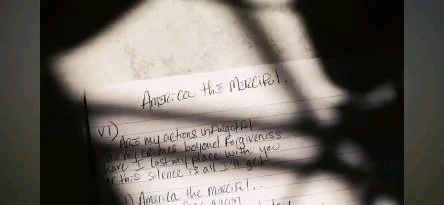 America the Merciful.
V1)
Are my actions unforgetful
or my crimes beyond Forgiveness
have I lost my place with you
if this silence is all I'll get
America the Merciful..